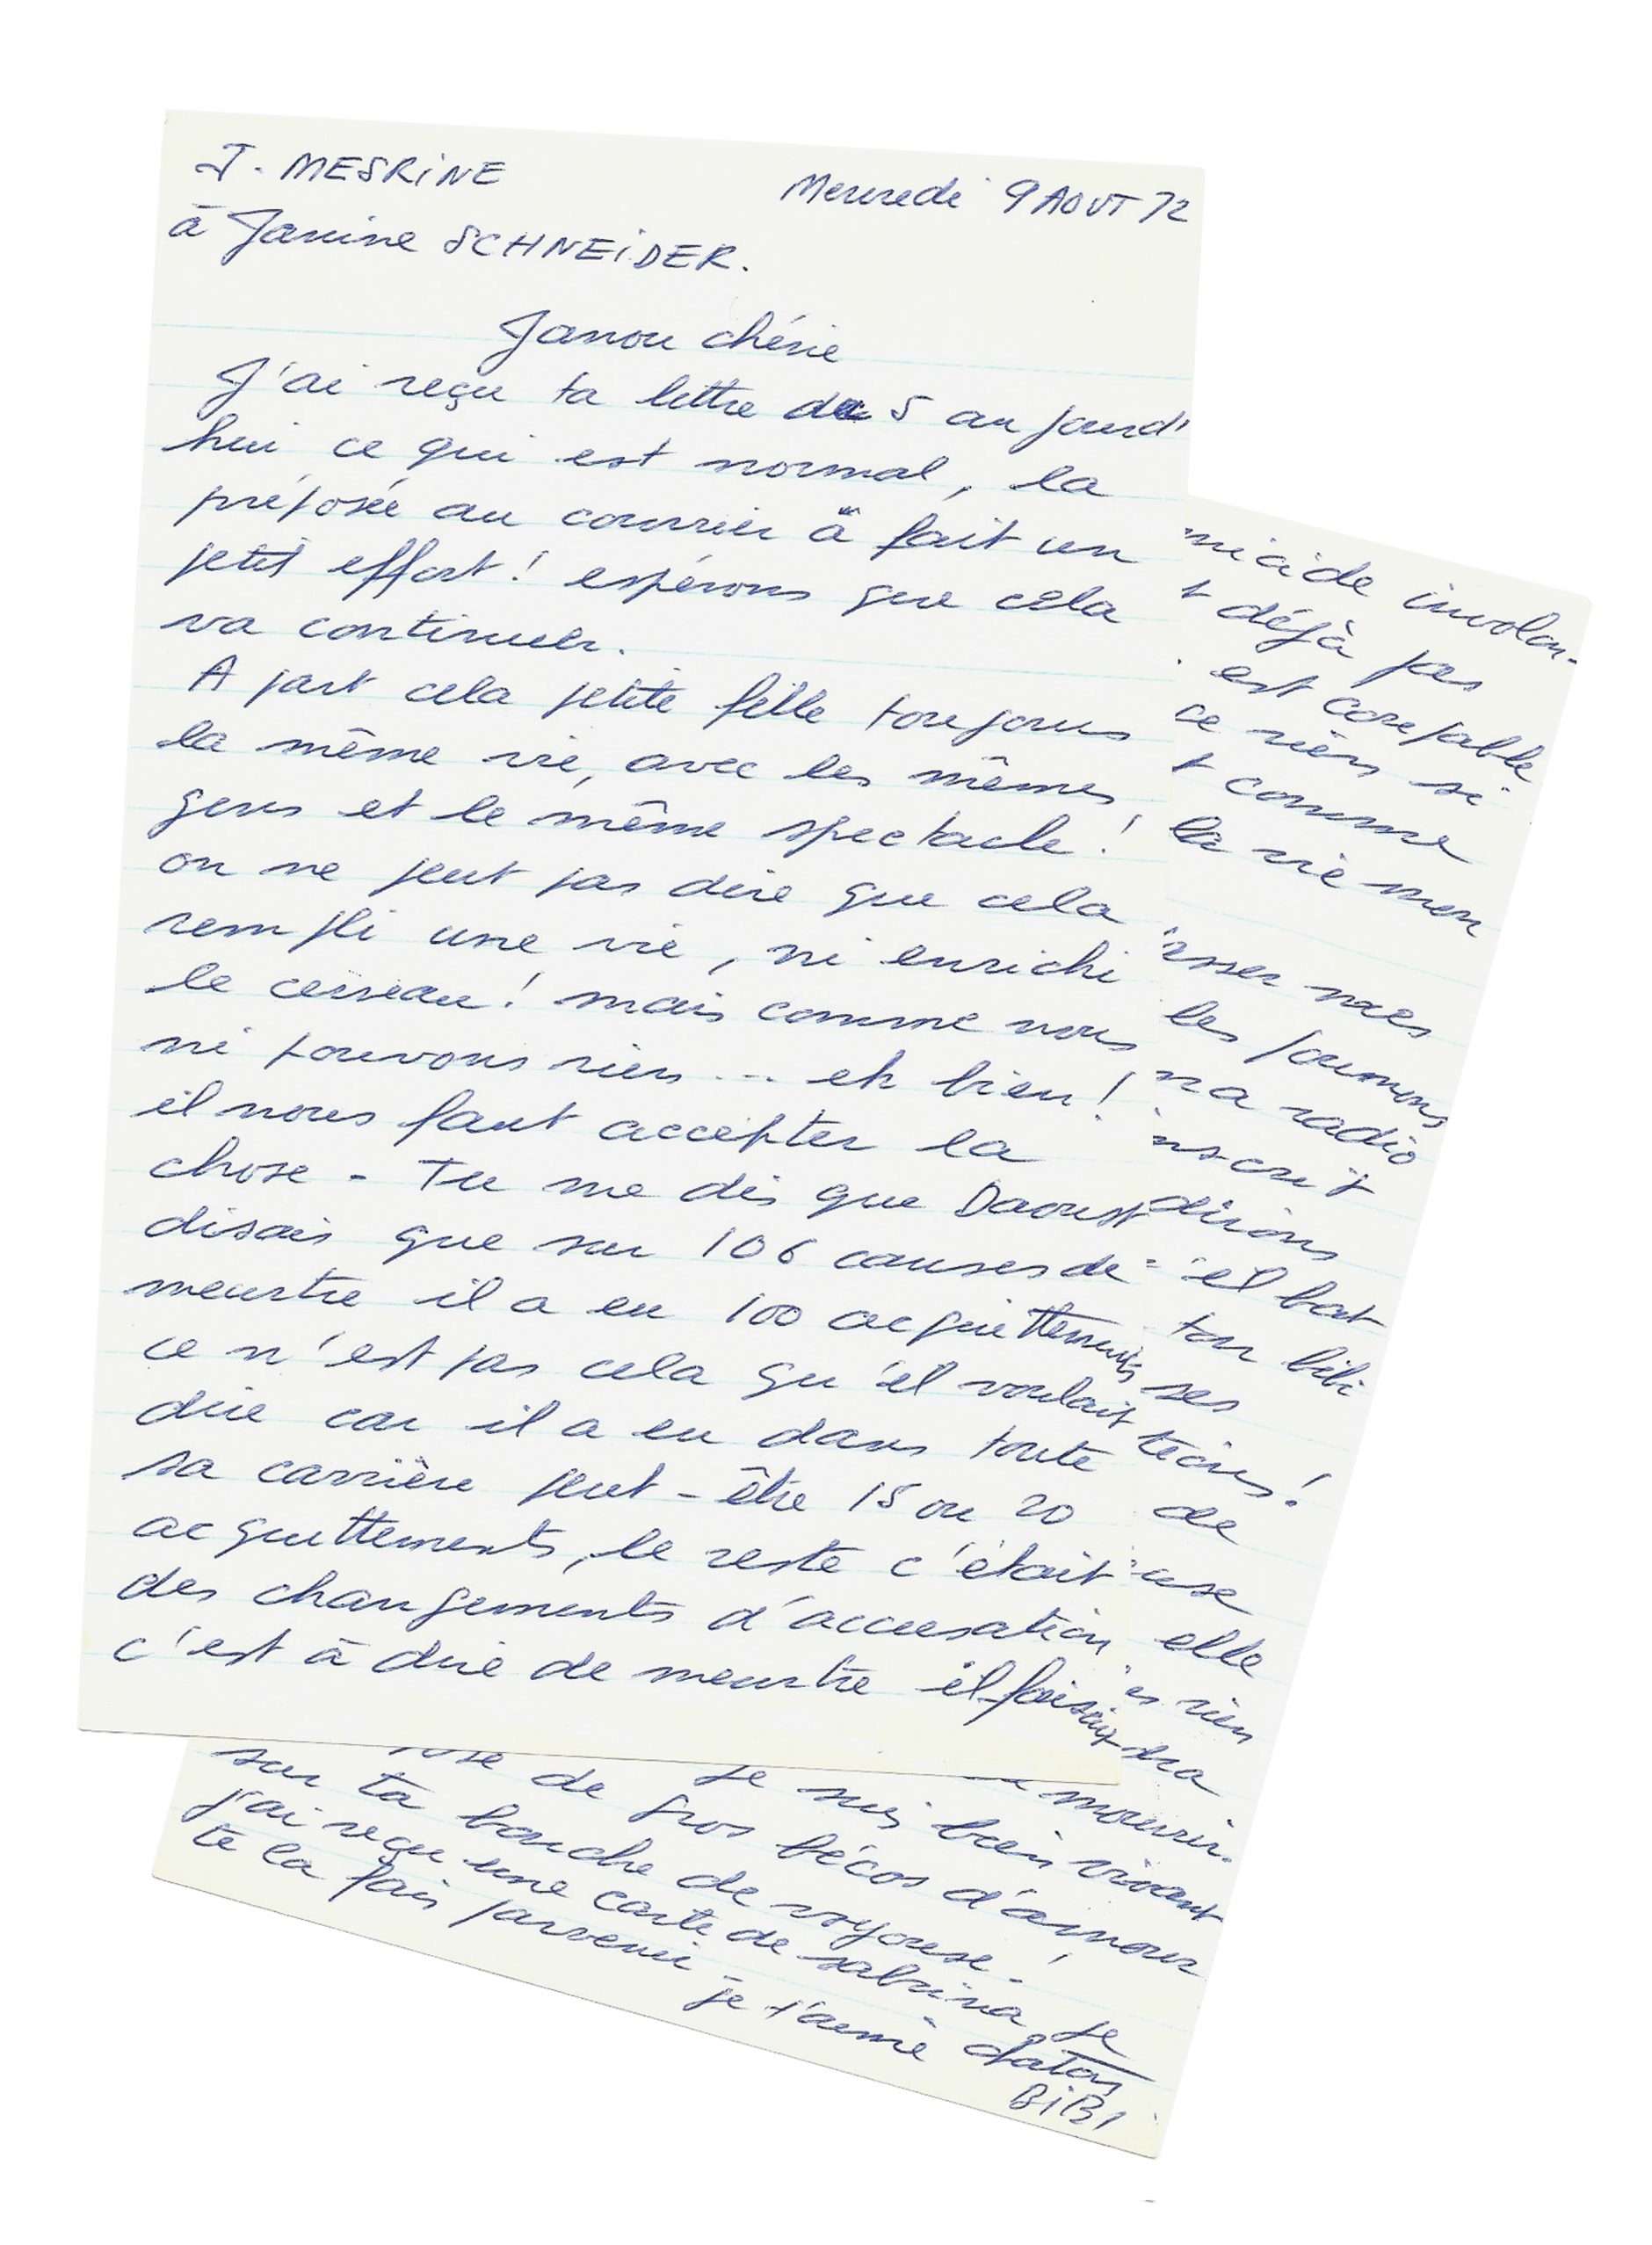 J. MESRINE
Mercredi 9 AOUT 72
à Janine SCHNEIDER.
Janou chérie
J'ai reçu ta lettre du 5 aujourd'
hui ce qui est normal, la
préposée au courrier à fait un
petit effort! espérons que cela
va continuer.
A part cela petite fille toujours
la même vie, avec les mêmes
gens et le même spectacle!
on ne peut pas dire que cela
rempli une vie, ni enrichi
le cerveau! mais comme nous
ni pouvons rien... eh bien!
il nous faut accepter la
chose - Tu me dis que Daoust
disais que sur 106 causes de
meurtre il a eu 100 acquittements
ce n'est pas cela qu'il voulait
dire car il a eu dans toute
sa carrière peut-être 15 ou 20
acquittements, le reste c'était
des changements d'accusation
c'est à dire de meurtre il faisait
micide involon-
t déjà pas
est coupable
ce rien si
t comme
la vie mon
sser mes
les poumons
ma radio
nscrit
dirions
el bat
ton bibi
ses
tions!
de
use
elle
es rien
dra
mourir.
je suis bien vivant
de gros bécos d'amour
sur ta bouche de voyouse.
j'ai reçu une carte de sabrina je
te la fais parvenir -
je t'aime chaton
BiBi